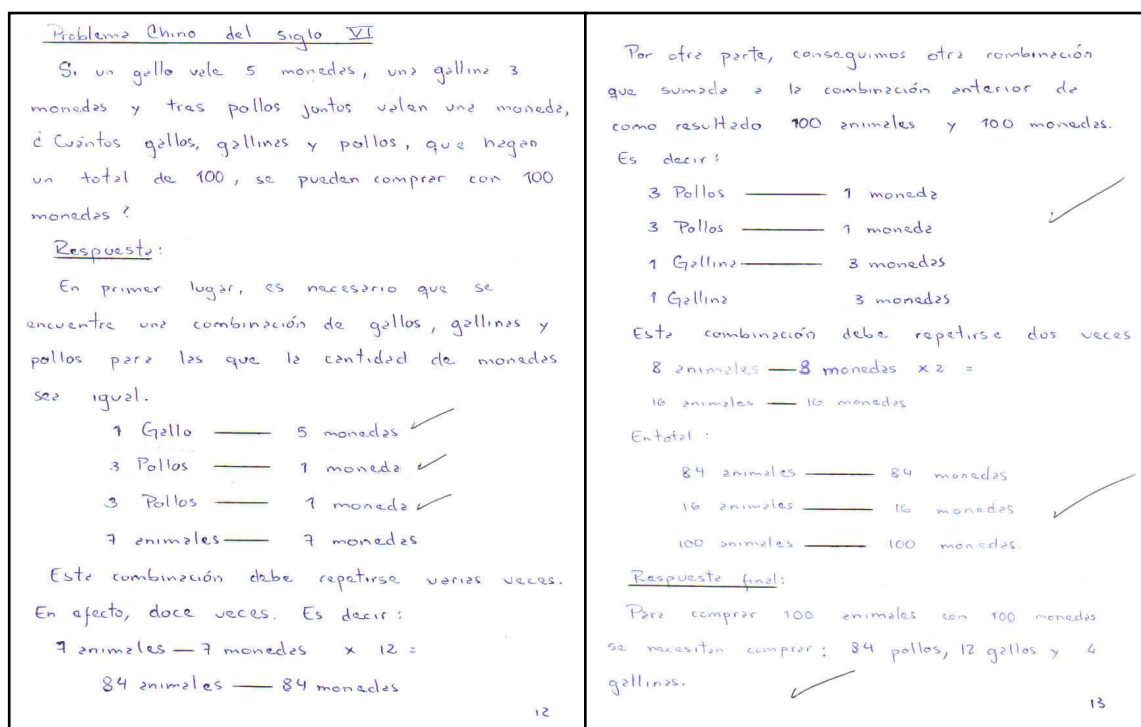 Problema Chino del siglo VI
Si un gallo vale 5 monedas, una gallina 3
monedas y tres pollos juntos valen una moneda,
¿Cuántos gallos, gallinas y pollos, que hagan
un total de 100, se pueden comprar con 100
monedas?
Respuesta:
En primer lugar, es necesario que se
encuentre una combinación de gallos, gallinas y
pollos para las que la cantidad de monedas
sea igual.
1 Gallo — 5 monedas
3 Pollos — 1 moneda
3 Pollos — 1 moneda
7 animales — 7 monedas
Esta combinación debe repetirse varias veces.
En efecto, doce veces. Es decir:
7 animales — 7 monedas x 12 =
84 animales — 84 monedas
12
Por otra parte, conseguimos otra combinación
que sumada a la combinación anterior de
como resultado 100 animales y 100 monedas.
Es decir:
3 Pollos — 1 moneda
3 Pollos — 1 moneda
1 Gallina — 3 monedas
1 Gallina 3 monedas
Esta combinación debe repetirse dos veces
8 animales — 8 monedas x 2 =
16 animales — 16 monedas
En total:
84 animales — 84 monedas
16 animales — 16 monedas
100 animales — 100 monedas.
Respuesta final:
Para comprar 100 animales con 100 monedas
se necesitan comprar: 84 pollos, 12 gallos y 4
gallinas.
13